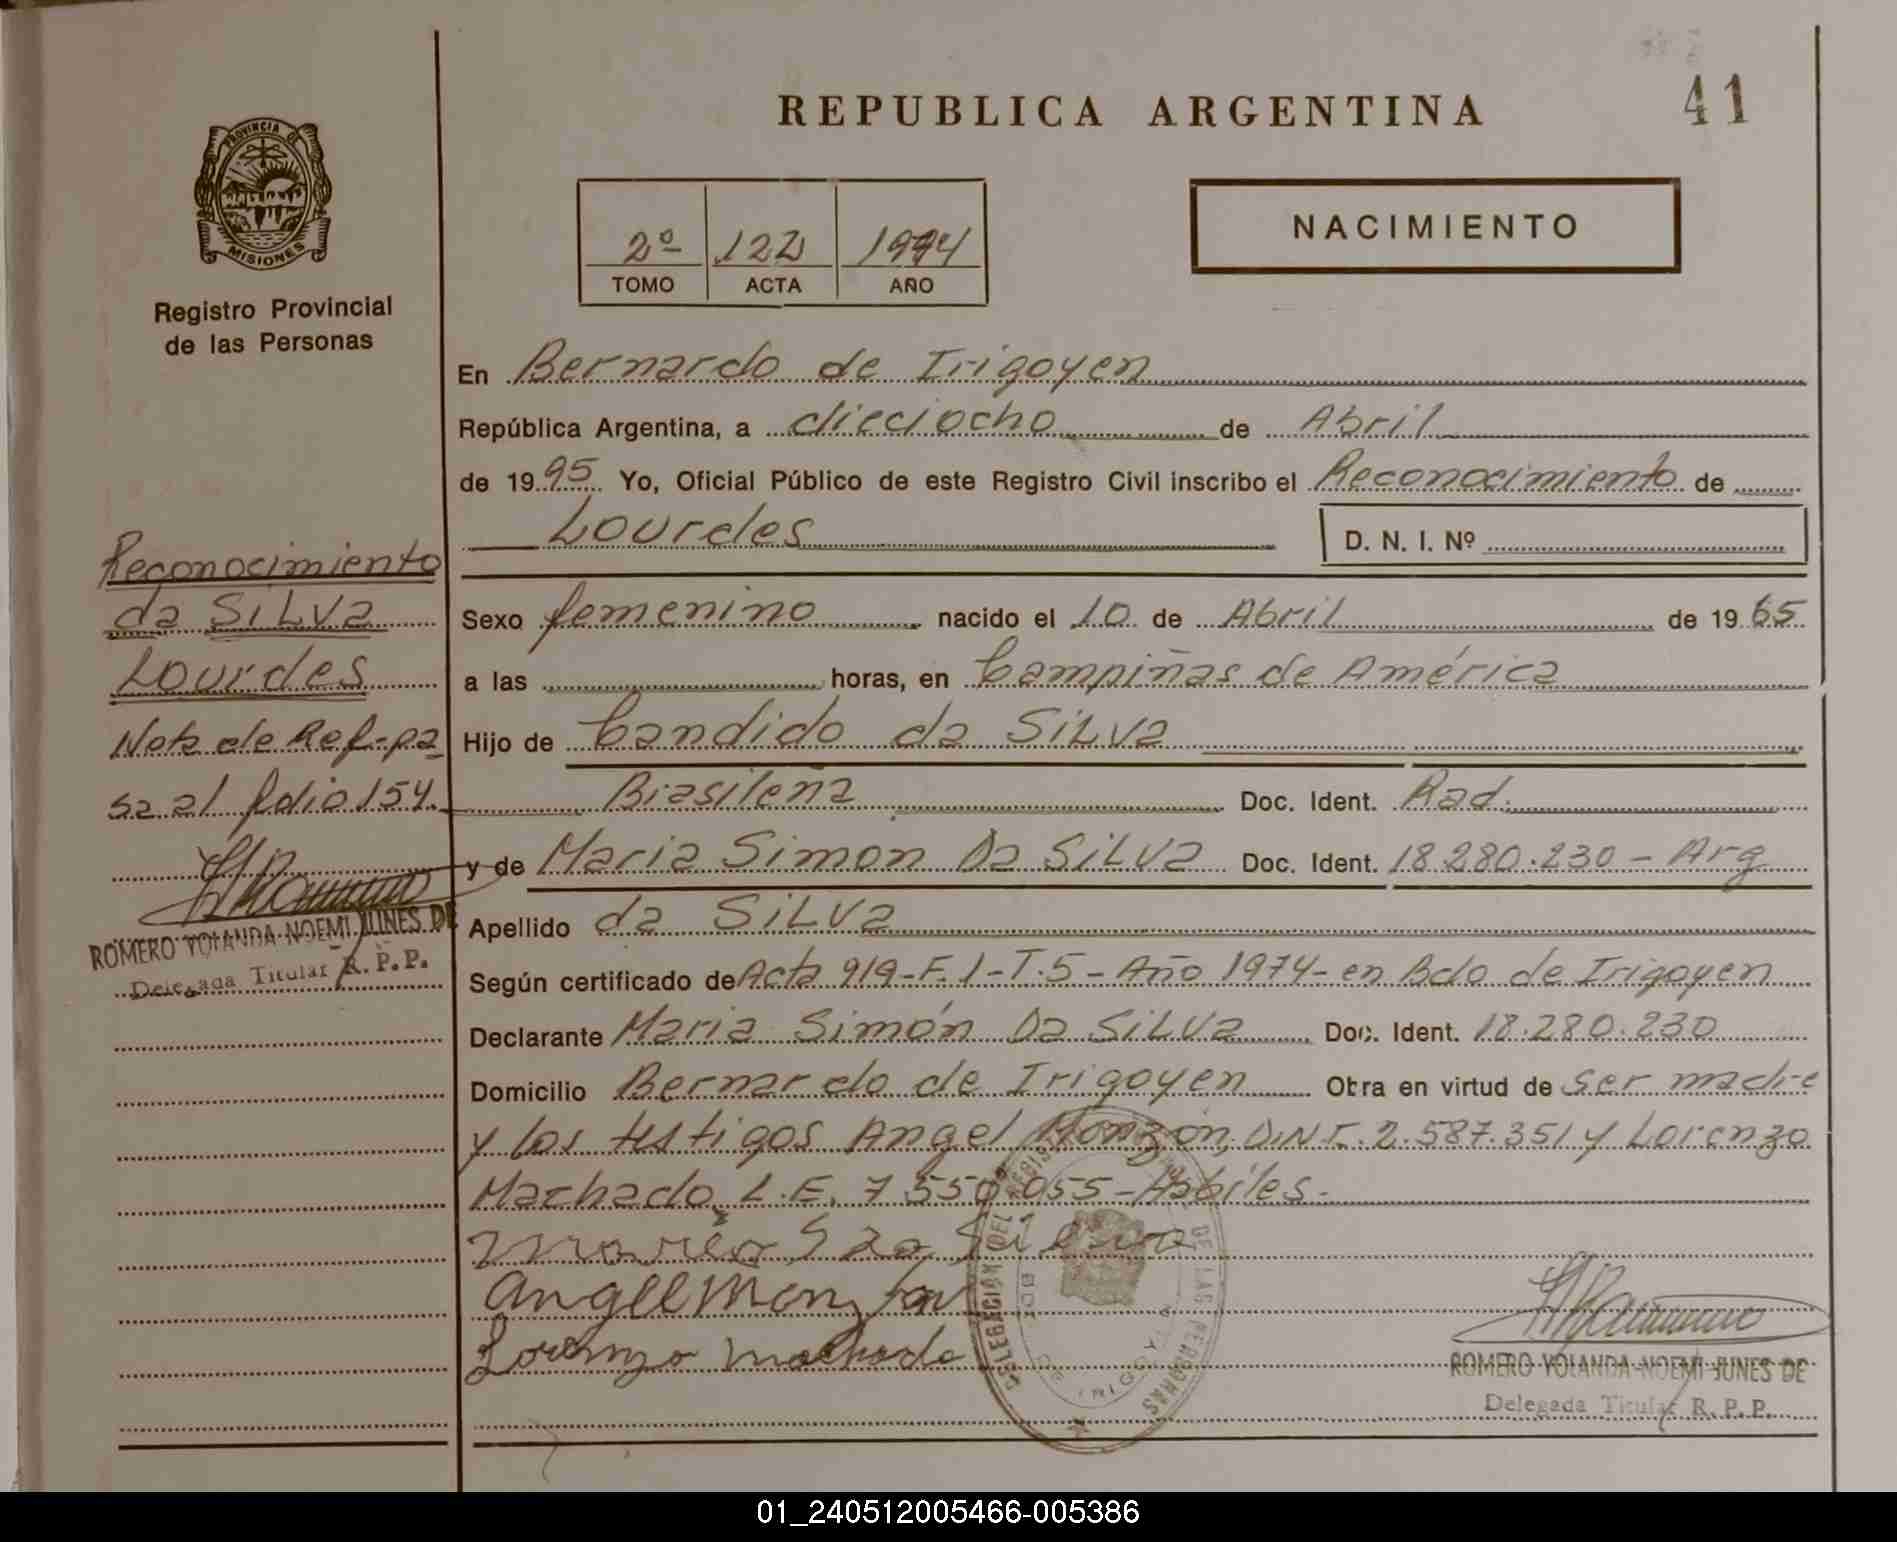 41
REPUBLICA ARGENTINA
PROVINCIA DE
MISIONES
Registro Provincial
de las Personas
2º 122 1994
TOMO ACTA AÑO
NACIMIENTO
En Bernardo de Irigoyen
República Argentina, a dieciocho de Abril
de 1995 Yo, Oficial Público de este Registro Civil inscribo el Reconocimiento de
Lourdes D. N. I. Nº
Sexo femenino nacido el 10 de Abril de 1965
a las horas, en Campiñas de América
Hijo de Candido da SiLVa
Brasileña Doc. Ident. Rad.
y de Maria Simon Da SiLVa Doc. Ident. 18.280.230 - Arg
Apellido da SiLVa
Según certificado de Acta 919-F.1-T.5-Año 1974-en Bdo de Irigoyen
Declarante Maria Simón Da SiLVa Doc. Ident. 18.280.230
Domicilio Bernardo de Irigoyen Obra en virtud de ser madre
y los testigos Angel Monzón, D.N.I. 2.587.351 y Lorenzo
Machado, L.E. 7.550.055-Hábiles-
Angel Monzon
Lorenzo Machado
Reconocimiento
da SiLVa
Lourdes
Nota de Ref-pa
sa al folio 154.
ROMERO YOLANDA NOEMI JUNES DE
Delegada Titular R.P.P.
DELEGACIÓN DEL REGISTRO DE LAS PERSONAS
BDO DE IRIGOYEN
ROMERO YOLANDA NOEMI JUNES DE
Delegada Titular R.P.P.
01_240512005466-005386